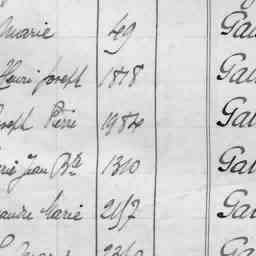 Marie 49 Gal
Henri Joseph 1878 Gal
Joseph Pierre 1984 Gal
Jean Bte 1310 Gal
Marie 2157 Gal
Gal